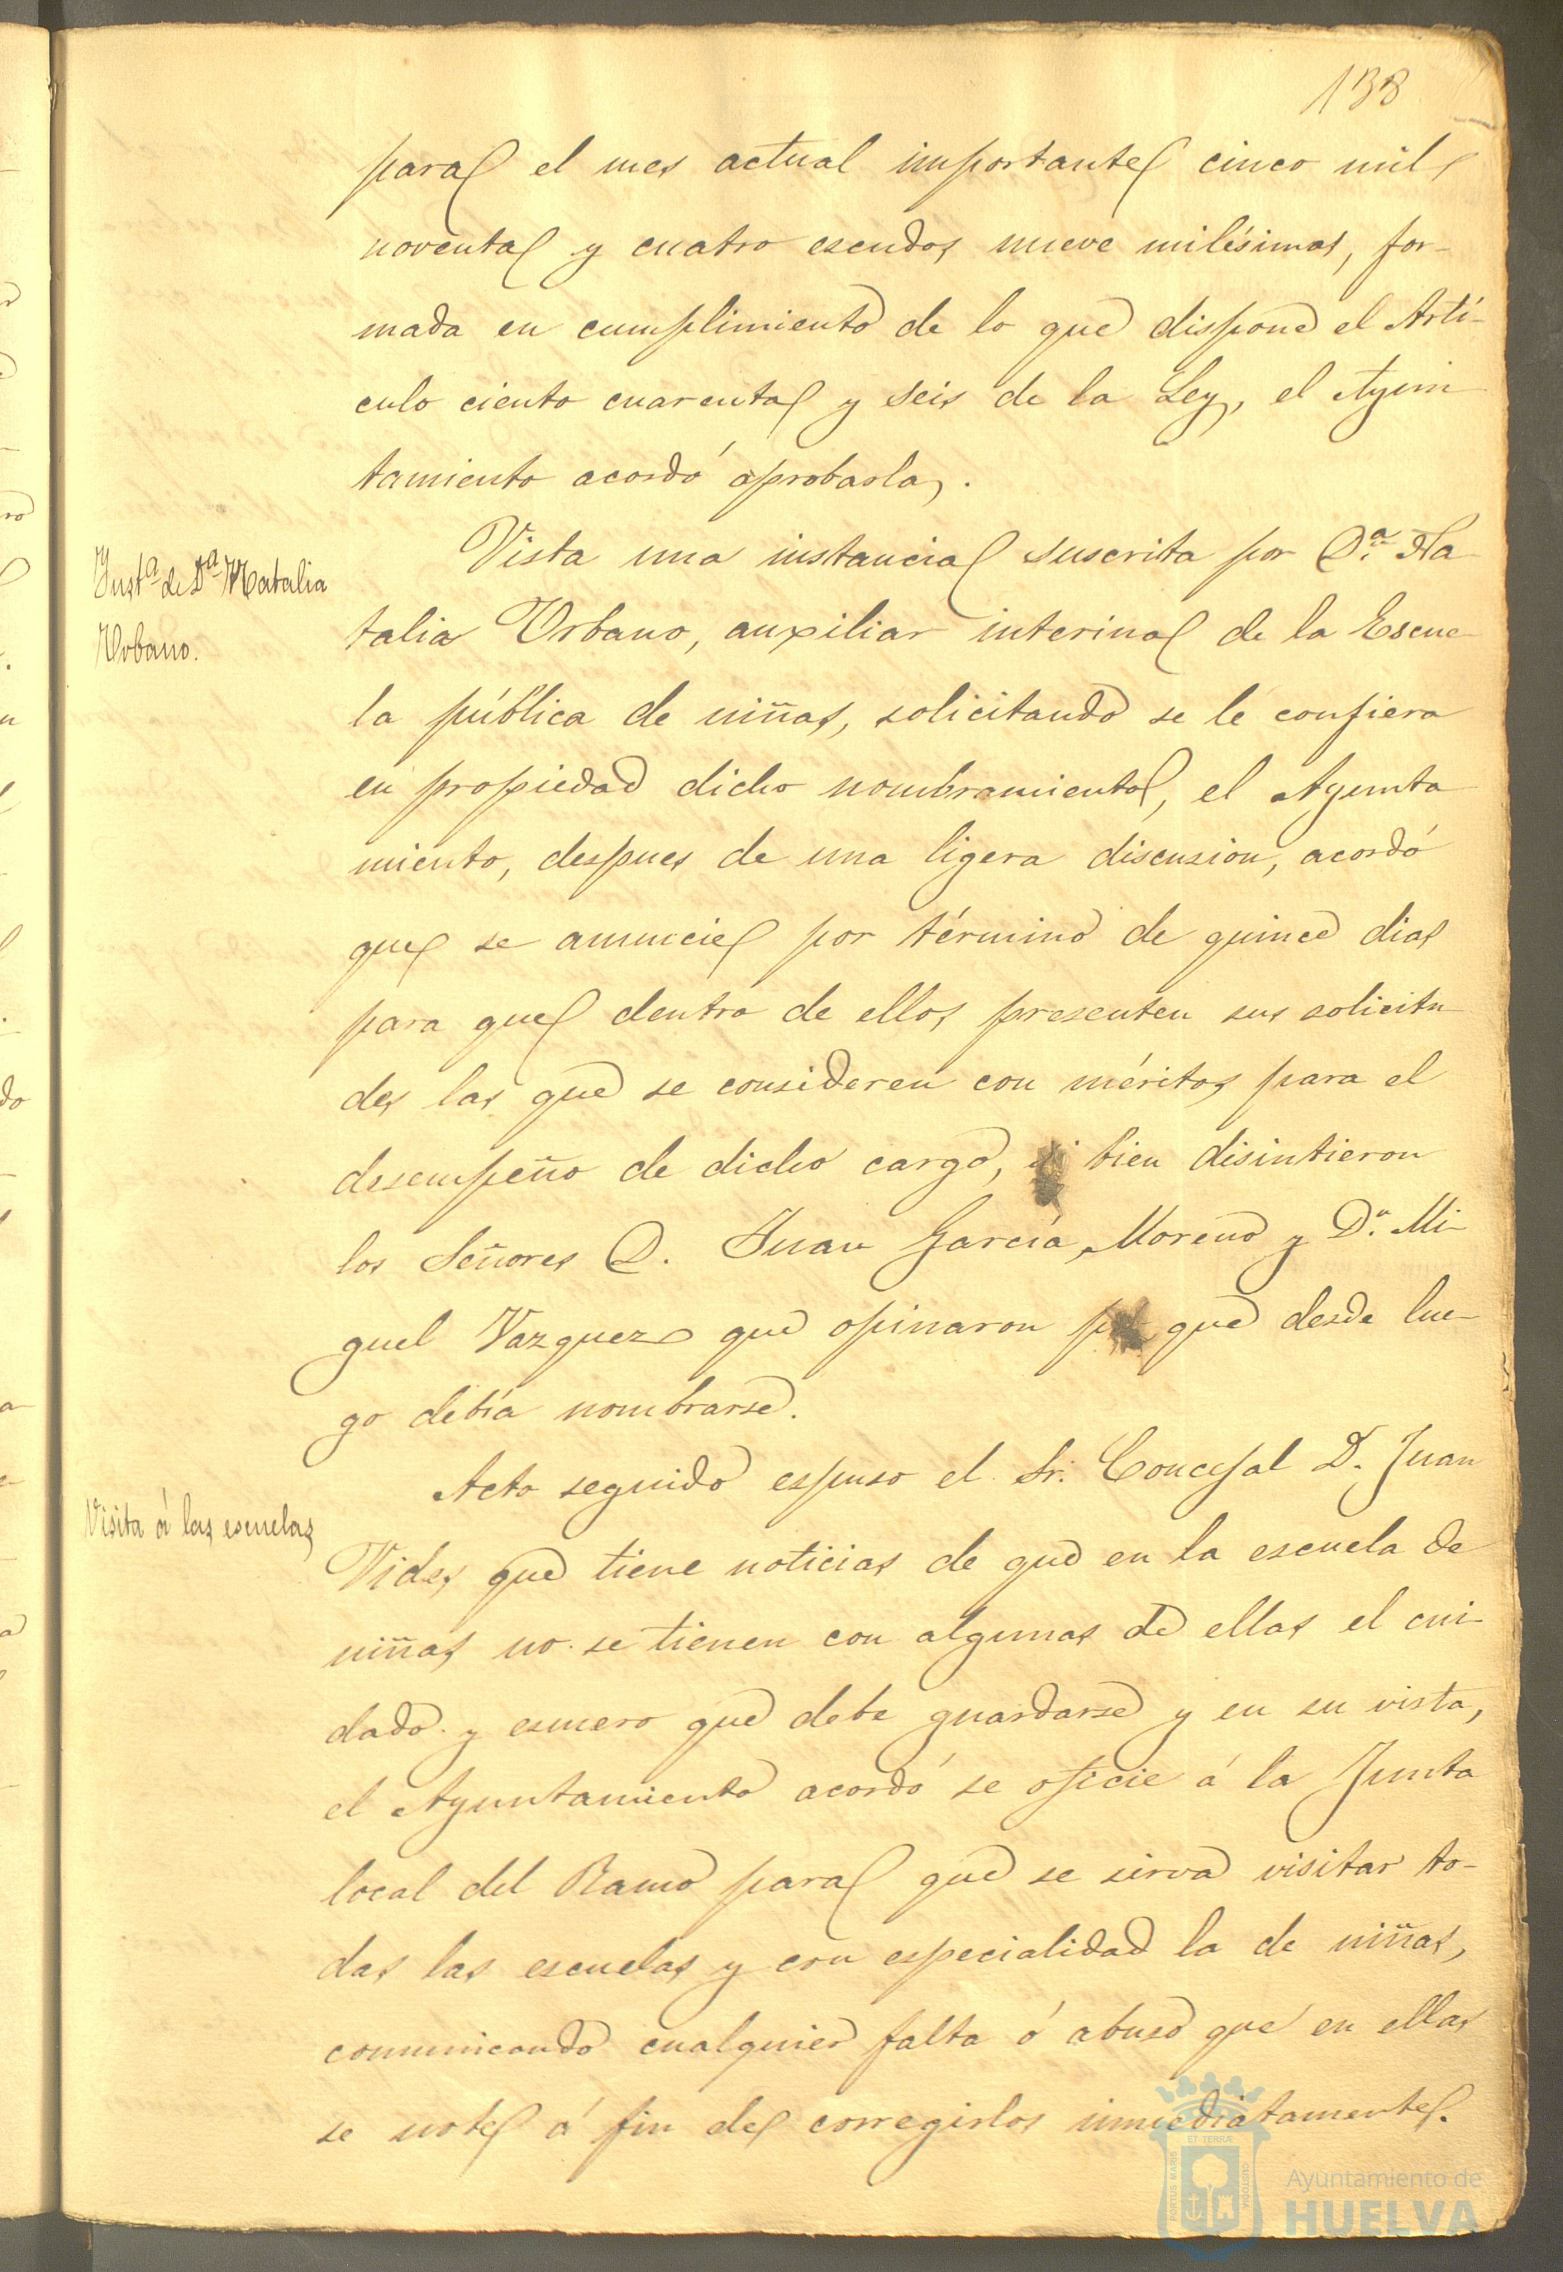 138
para el mes actual importante cinco mil
noventa y cuatro escudos nueve milésimas, for-
mada en cumplimiento de lo que dispone el Artí-
culo ciento cuarenta y seis de la Ley, el Ayun
tamiento acordó aprobarla.
Inst.ª de D.ª Natalia
Urbano.
Vista una instancia suscrita por D.ª Na
talia Urbano, auxiliar interina de la Escue-
la pública de niñas, solicitando se le confiera
en propiedad dicho nombramiento, el Ayunta
miento, despues de una ligera discusion, acordó
que se anuncie por término de quince dias
para que dentro de ellos presenten sus solicitu-
des las que se consideren con méritos para el
desempeño de dicho cargo, si bien disintieron
los Señores D. Juan García Moreno y D.n Mi-
guel Vazquez que opinaron que desde lue-
go debía nombrarse.
Visita á las escuelas
Acto seguido espuso el Sr. Concejal D. Juan
Vides que tiene noticias de que en la escuela de
niñas no se tienen con algunas de ellas el cui-
dado y esmero que debe guardarse y en su vista,
el Ayuntamiento acordó se oficie á la Junta
local del Ramo para que se sirva visitar to-
das las escuelas y con especialidad la de niñas,
comunicando cualquier falta ó abuso que en ellas
se note á fin de corregirlos inmediatamente.
PORTUS MARIS
ET TERRÆ
CUSTODIA
Ayuntamiento de
HUELVA